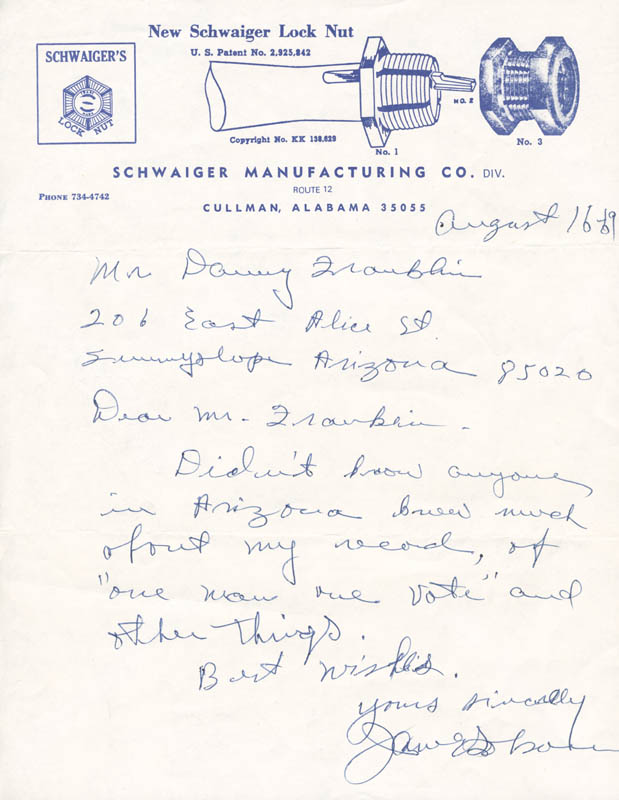 New Schwaiger Lock Nut
U. S. Patent No. 2,925,842
SCHWAIGER'S
S
LOCK NUT
NO. 2
Copyright No. KK 138,629
No. 1
No. 3
SCHWAIGER MANUFACTURING CO. DIV.
ROUTE 12
PHONE 734-4742
CULLMAN, ALABAMA 35055
August 16 69
Mr Danny Franklin
206 East Alice St.
Sunnyslope Arizona 85020
Dear Mr. Franklin.
Didn't know anyone
in Arizona knew much
about my record, of
"one man one vote" and
other things.
Best wishes.
yours sincerely